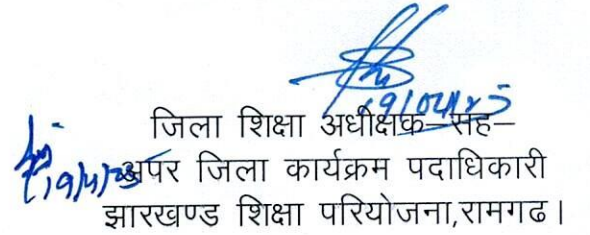 19/04/25
जिला शिक्षा अधीक्षक–सह–
19/4/25 अपर जिला कार्यक्रम पदाधिकारी
झारखण्ड शिक्षा परियोजना,रामगढ।